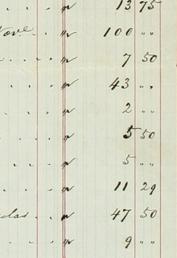 " 13 75
ove " 100 " "
" 7 50
" 43 " "
" 2 " "
" 5 50
" 5 " "
" 11 29
das " 47 50
" 9 " "